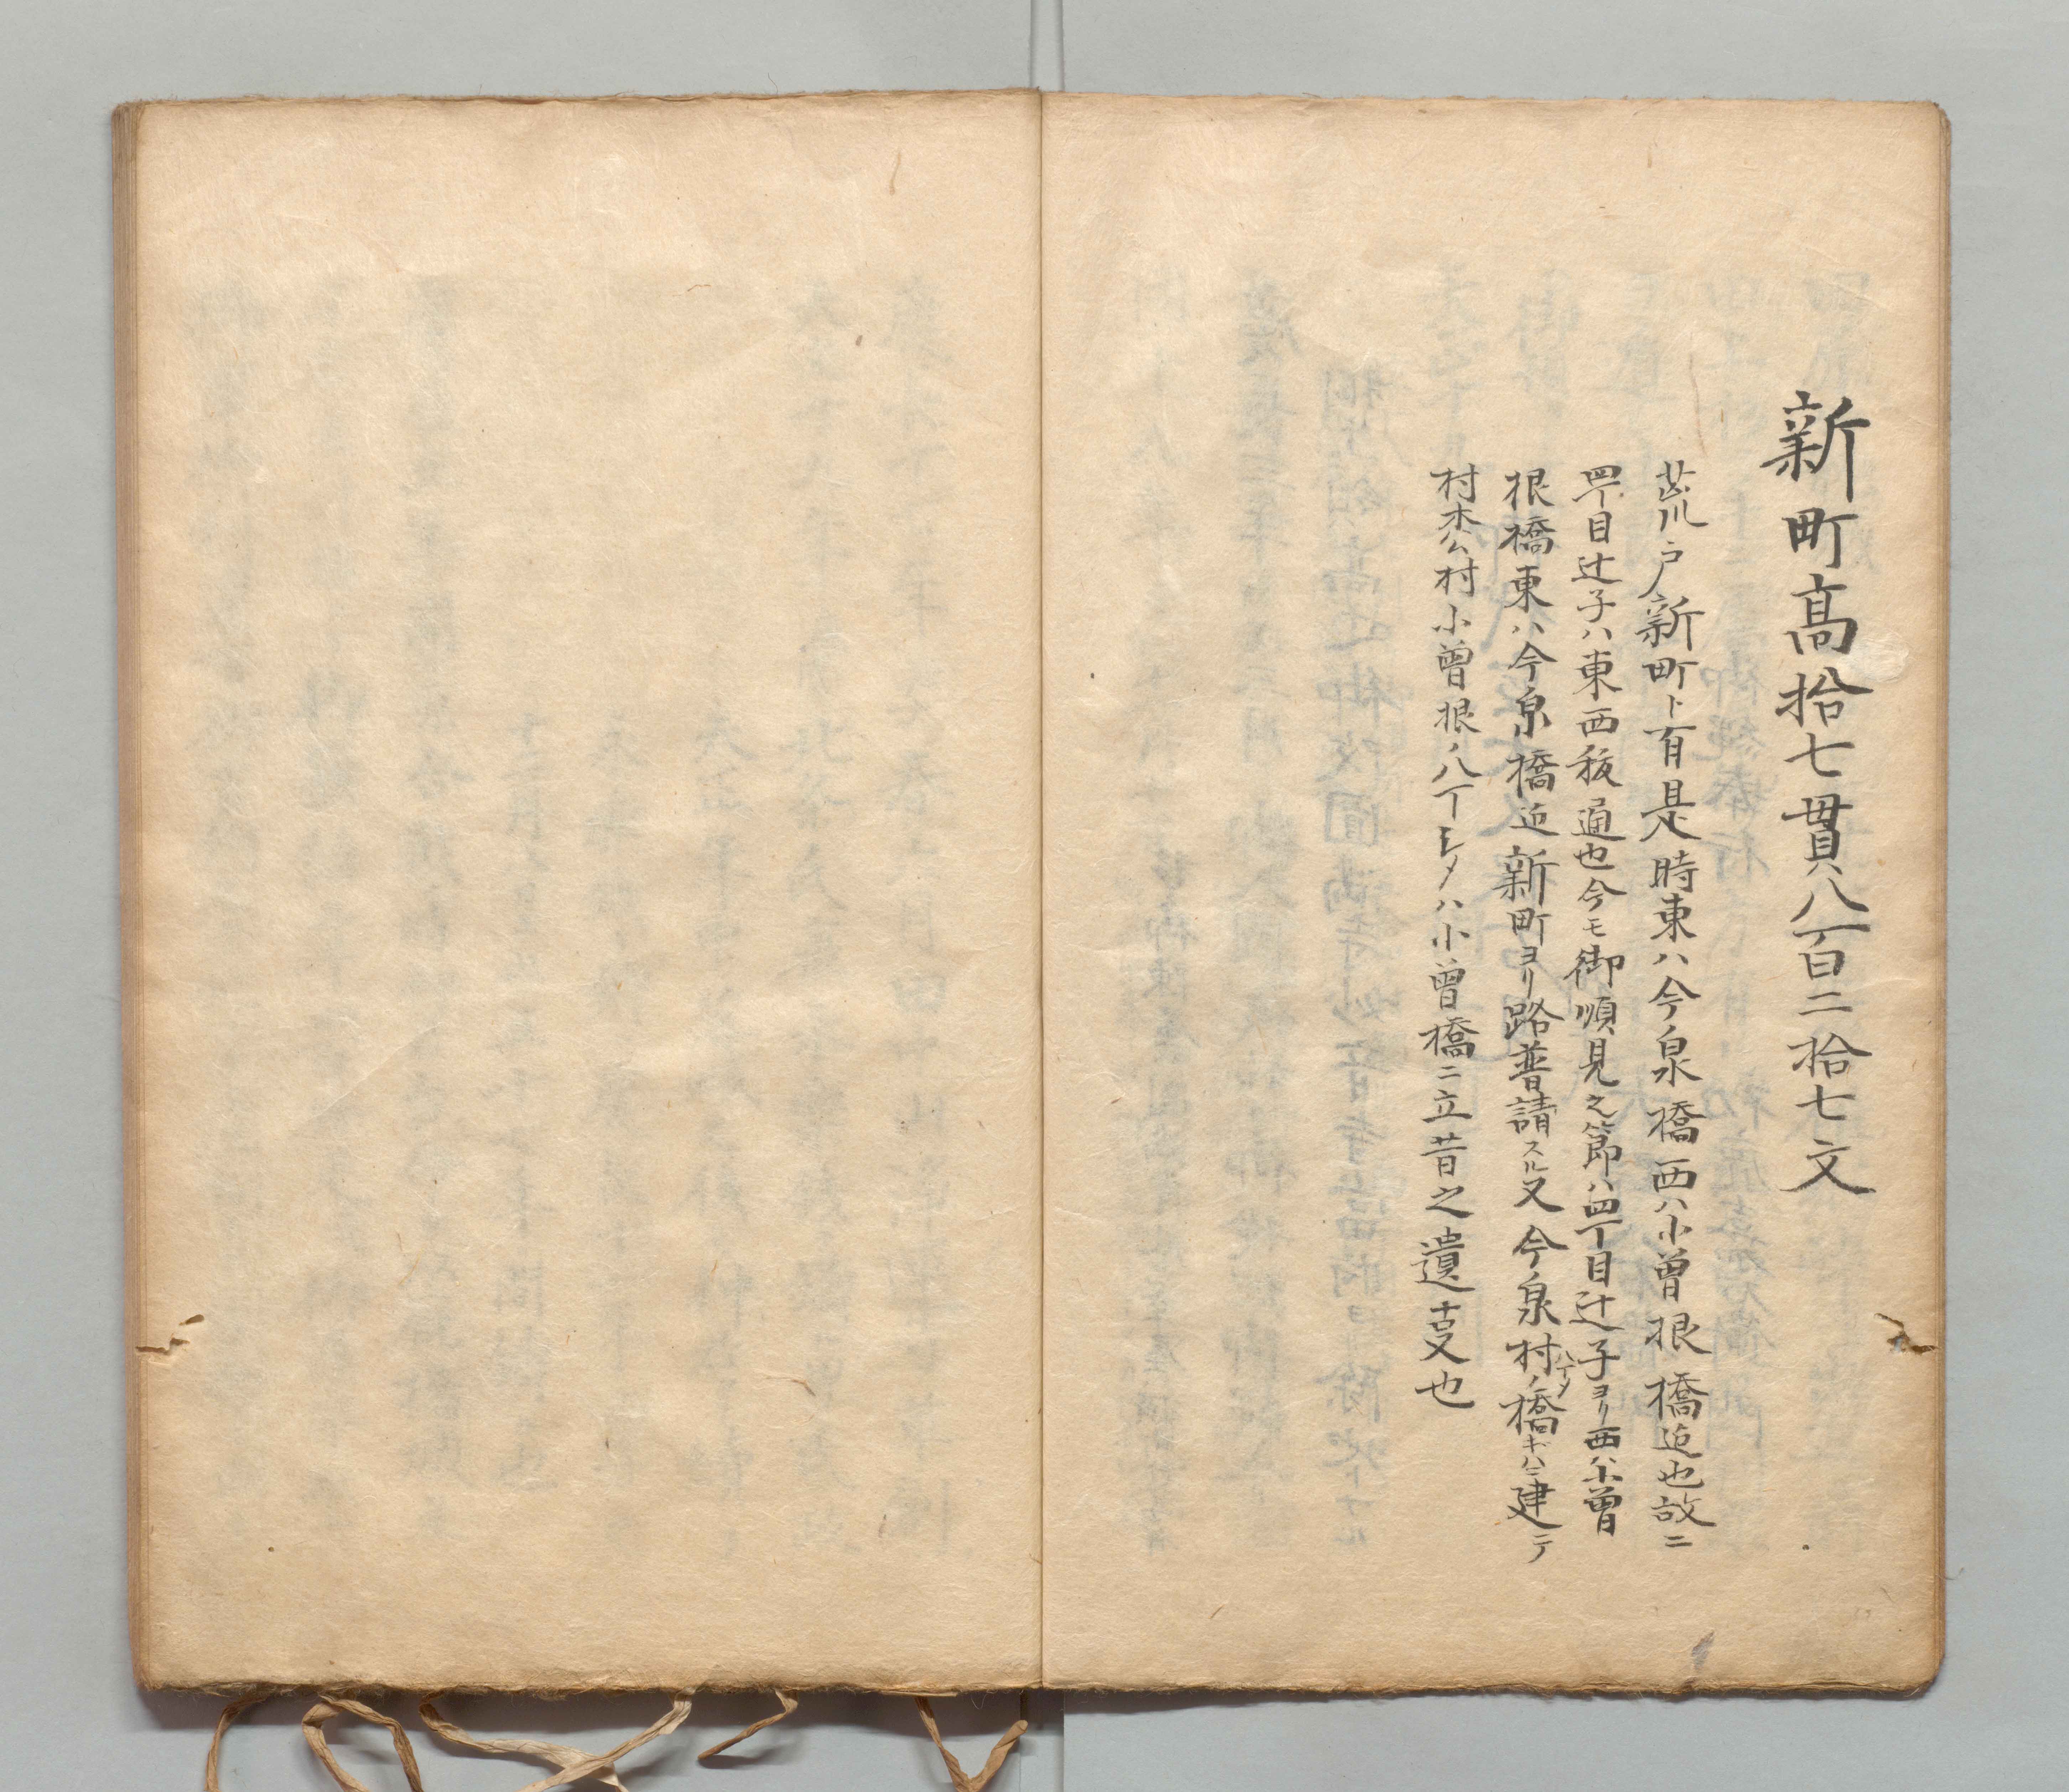 新町高拾七貫八百二拾七文
荒川戸新町ト有是時東ハ今泉橋西ハ小曽根橋迄也故ニ
四丁目辻子ハ東西秡通也今モ御順見之節ハ四丁目辻子ヨリ西ハ小曽
根橋東ハ今泉橋迄新町ヨリ路普請スル又今泉村ノ橋キハニ建テ
村木公村小曽根ノ八丁シメハ小曽橋ニ立昔之遺叓也
八丁メ